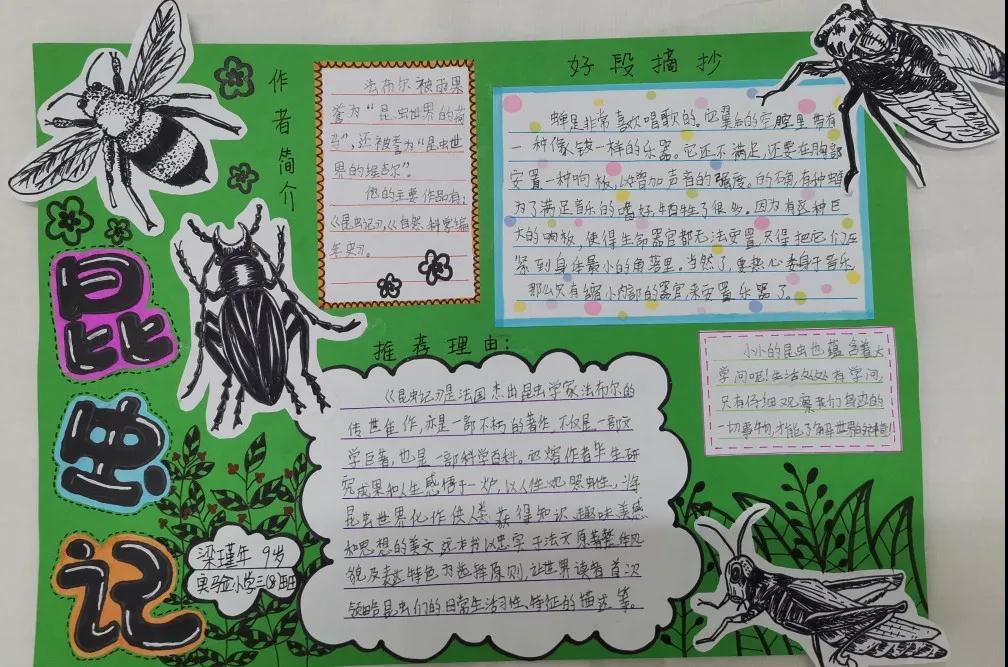 昆虫记
作者简介
法布尔被雨果
誉为“昆虫世界的荷
马”，还被誉为“昆虫世
界的维吉尔”。
他的主要作品有：
《昆虫记》，《自然科学编
年史》。
好段摘抄
蝉是非常喜欢唱歌的。它翼后的空腔里带有
一种像钹一样的乐器。它还不满足，还要在胸部
安置一种响板，以增加声音的强度。的确，有种蝉
为了满足音乐的嗜好，牺牲了很多。因为有这种巨
大的响板，使得生命器官都无法安置，只得把它们压
紧到身体最小的角落里。当然了，要热心委身于音乐，
那么只有缩小内部的器官，来安置乐器了。
推荐理由：
《昆虫记》是法国杰出昆虫学家法布尔的
传世佳作，亦是一部不朽的著作，不仅是一部文
学巨著，也是一部科学百科。它熔作者毕生研
究成果和人生感悟于一炉，以人性观照虫性，将
昆虫世界化作供人类获得知识、趣味、美感
和思想的美文。这本书以忠实于法文原著整体风
貌及表达特色为选择原则，让世界读者首次
领略昆虫们的日常生活习性、特征的描述等。
小小的昆虫也蕴含着大
学问呢！生活处处有学问，
只有仔细观察我们身边的
一切事物，才能了解世界的
梁瑾年 9岁
奥马小学三（8）班